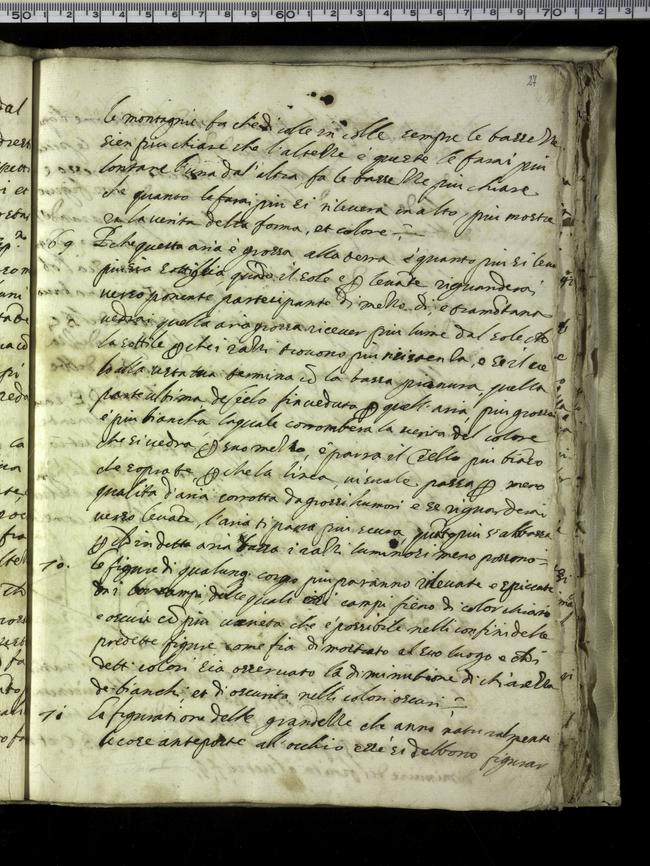 27
le montagnie fa che di colle in colle sempre le bassezze
sien piu chiare che l'altezze e queste le farai piu
lontane l'una dal'altra fa le bassezze piu chiare
che quanto le farai piu si rilevera in alto, piu mostre
ra la verita della forma, et colore
69 P che questa aria è grossa, alla terra e quanto piu si leva
piu sia sottiglia, quado el sole è P levate riguarderai
verso ponente, partecipante di mezzo di, e tramotana
vedrai quella aria grossa ricever piu lume dal sole ch
la sottile P che i razzi trovono piu resistenza, e se il cie
lo alla vista tua termina co la bassa pianura, quella
parte ultima de cielo fia veduta P quell'aria piu grossa
e piu biancha laquale corrompera la verita del colore
che si vedra P suo mezzo, e parra il cielo piu biaco
che sopra te P che la linea visuale passa P meno
qualita d'aria corrotta da grossi humori e se riguarderai
verso levate, l'aria ti parra piu scura, quato piu s'abbassa
P ch in detta aria bassa i razzi luminosi meno passono
70. le figure di qualunq corpo piu parranno rilevate e spiccate
da i campi delle quali essi campi fieno di color chiari
e oscuri co piu varieta che è possibile nelli confini delle
predette figure come fia dimostrato al suo luogo e che
detti colori sia osservato la diminutione di chiarezza
de bianchi et di oscurita nelli colori oscuri
71 la figuratione delle grandezze che anno naturalmente
le cose anteposte all'occhio essi si debbono figurar